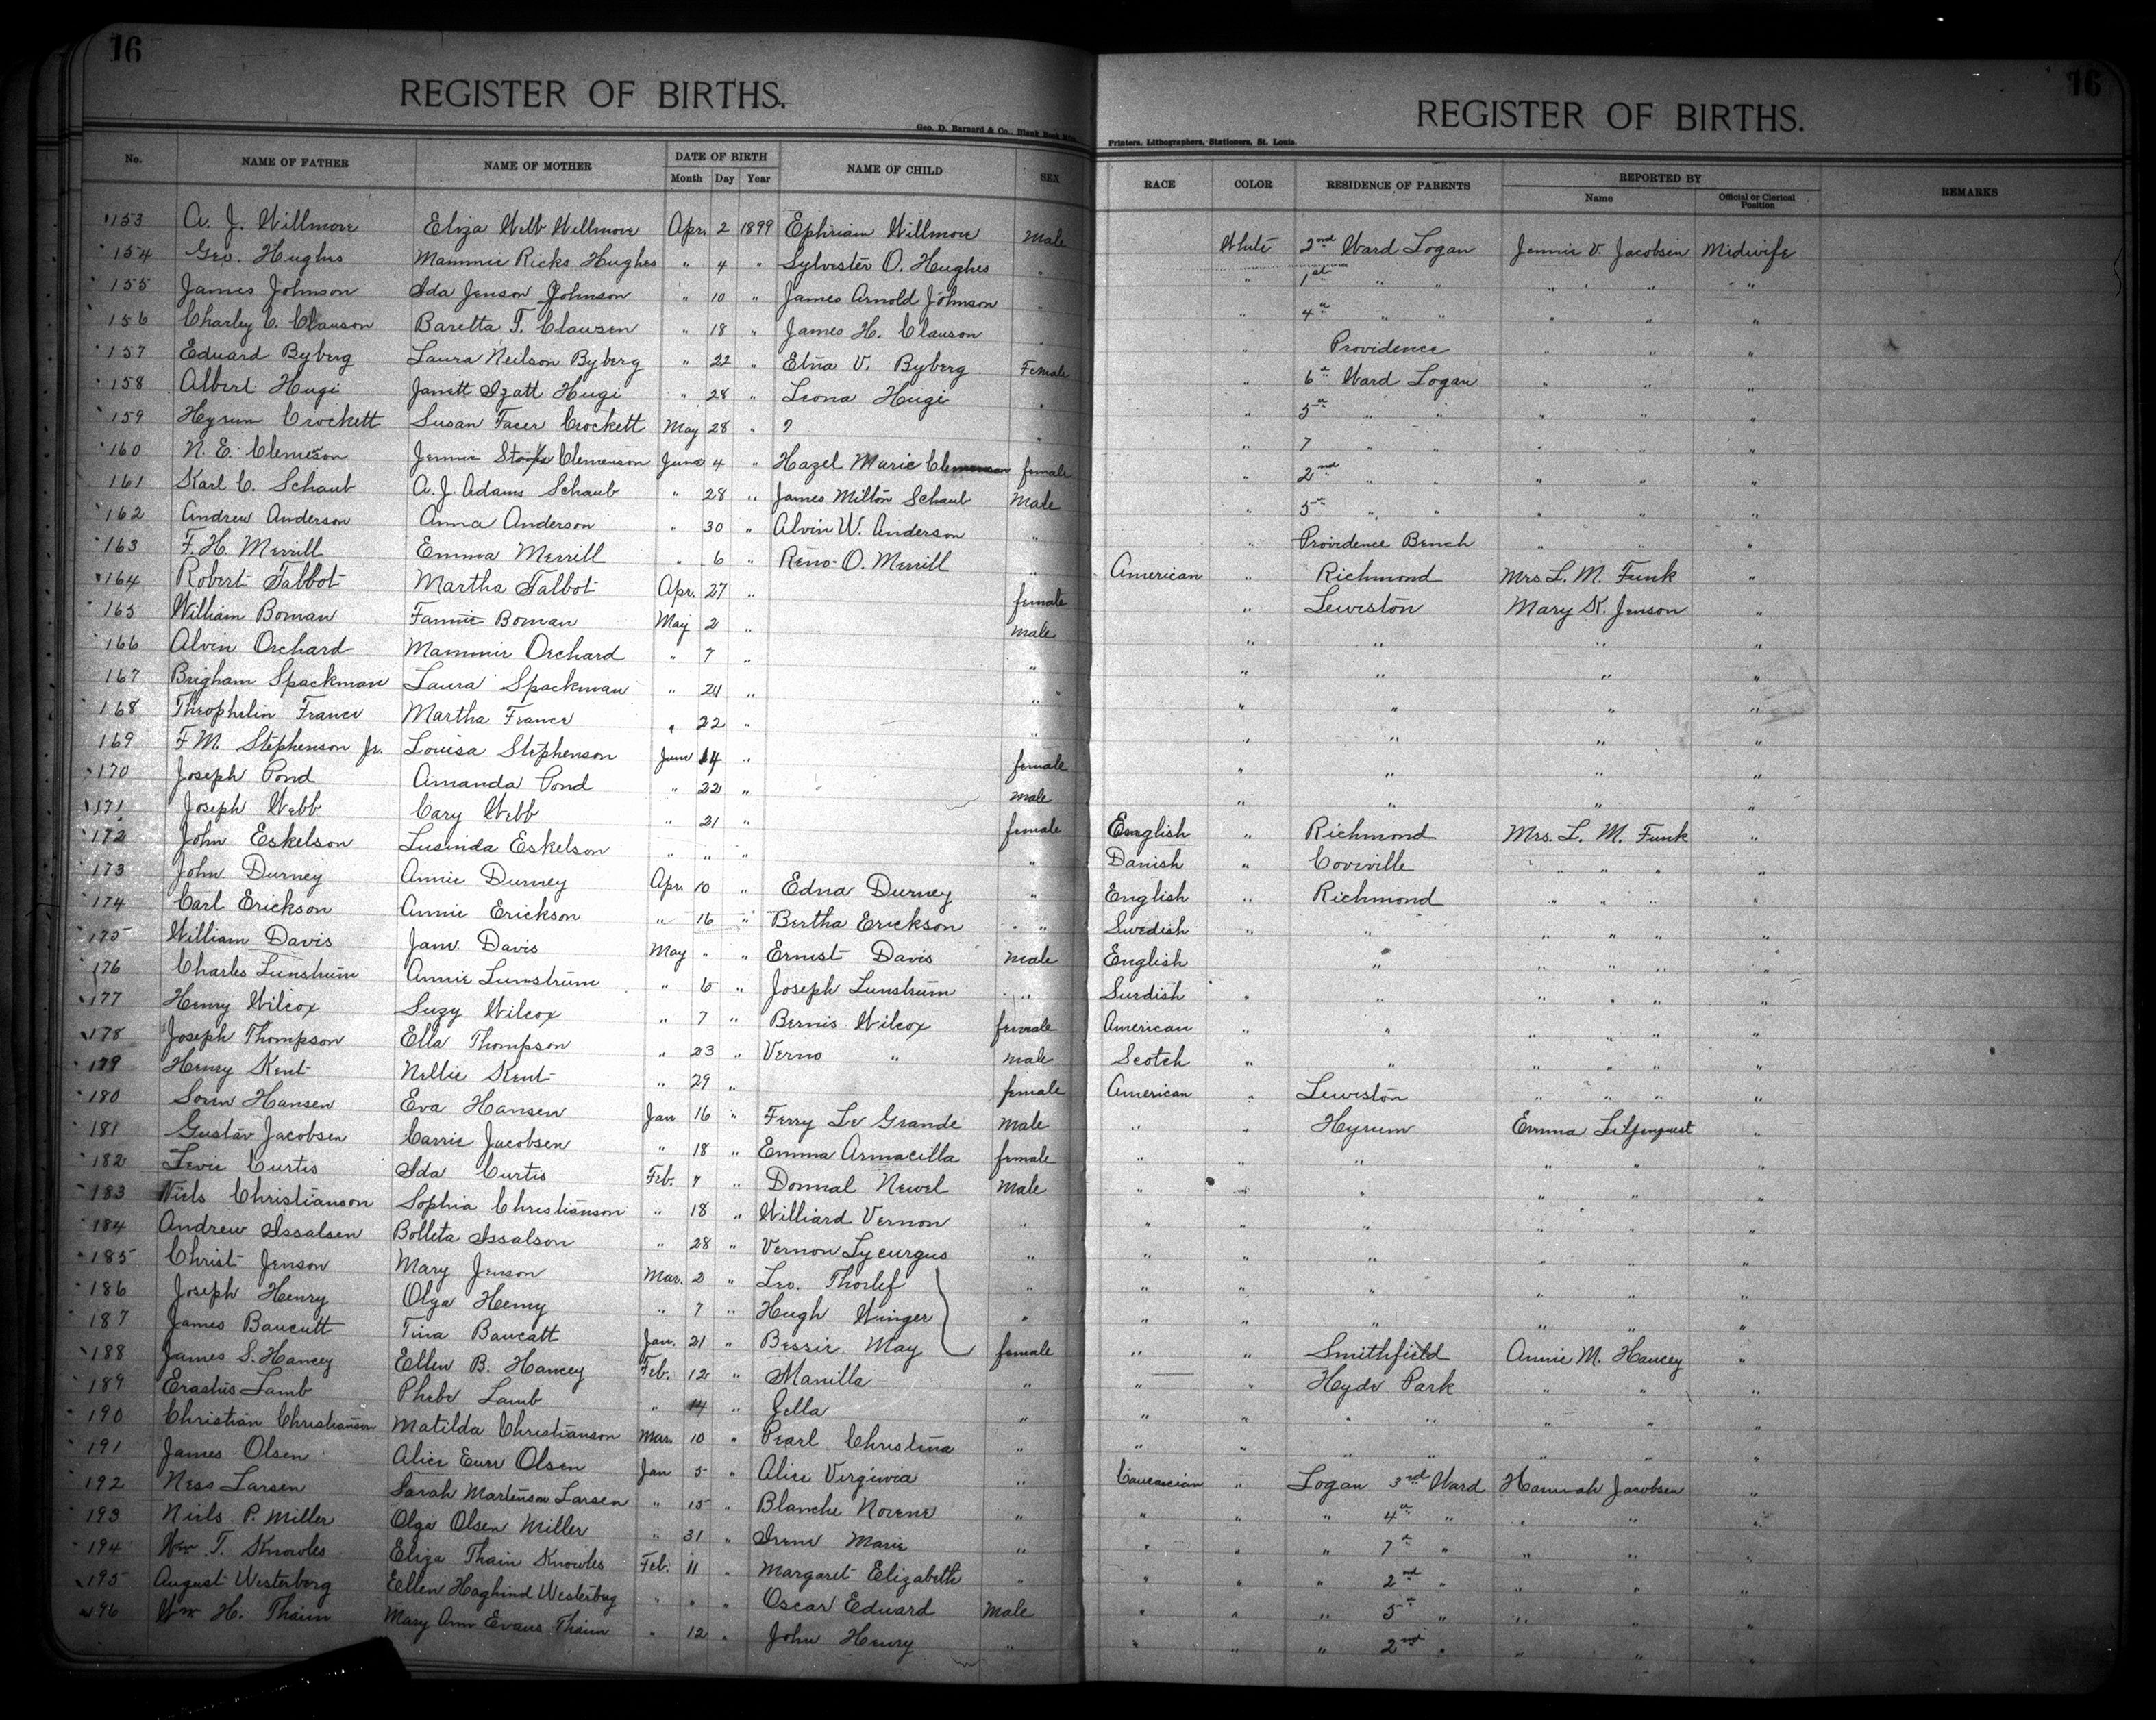 16
REGISTER OF BIRTHS.
Geo. D. Barnard & Co., Blank Book
No. NAME OF FATHER NAME OF MOTHER DATE OF BIRTH Month Day Year NAME OF CHILD SEX
16
REGISTER OF BIRTHS.
Printers, Lithographers, Stationers, St. Louis.
RACE COLOR RESIDENCE OF PARENTS REPORTED BY Name Official or Clerical Position REMARKS
153 A. J. Willmore Eliza Webb Willmore Apr. 2 1899 Ephriam Willmore Male White 2nd Ward Logan Jennie V. Jacobsen Midwife
154 Geo. Hughes Mammie Ricks Hughes " 4 " Sylvester O. Hughes " " 1st " " " " " "
155 James Johnson Ida Jenson Johnson " 10 " James Arnold Johnson " " 4th " " " " "
156 Charley C. Clauson Baretta T. Clausen " 18 " James H. Clauson " " Providence " " "
157 Eduard Byberg Laura Neilson Byberg " 22 " Elna V. Byberg Female " 6th Ward Logan " " "
158 Albert Hugi Janett Izatt Hugi " 28 " Leona Hugi " " 5th " " " " "
159 Hyrum Crockett Susan Facer Crockett May 28 " ? " " 7 " " " " "
160 N. E. Clemeson Jennie Clemenson June 4 " Hazel Marie Clemenson female " 2nd " " " " "
161 Karl C. Schaub A. J. Adams Schaub " 28 " James Milton Schaub Male " 5th " " " " "
162 Andrew Anderson Anna Anderson " 30 " Alvin W. Anderson " " Providence Bench " " "
163 F. H. Merrill Emma Merrill " 6 " Reno. O. Merrill " American " Richmond Mrs. L. M. Funk "
164 Robert Talbot Martha Talbot Apr. 27 " female " Lewiston Mary K. Jenson "
165 William Boman Fannie Boman May 2 " male " " " "
166 Alvin Orchard Mammie Orchard " 7 " " " " " "
167 Brigham Spackman Laura Spackman " 21 " " " " " "
168 Theophelin France Martha France " 22 " " " " " "
169 F. M. Stephenson Jr. Louisa Stephenson June 14 " female " " " "
170 Joseph Pond Amanda Pond " 22 " male " " " "
171 Joseph Webb Cary Webb " 21 " female English " Richmond Mrs. L. M. Funk "
172 John Eskelson Lusinda Eskelson " " " " Danish " Coveville " " " "
173 John Durney Annie Durney Apr. 10 " Edna Durney " English " Richmond " " " "
174 Carl Erickson Annie Erickson " 16 " Bertha Erickson " Swedish " " " " " "
175 William Davis Jane Davis May " " Ernest Davis male English " " " " " "
176 Charles Lunstrum Annie Lunstrum " 6 " Joseph Lunstrum " Swedish " " " " " "
177 Henry Wilcox Suzy Wilcox " 7 " Bernis Wilcox female American " " " " " "
178 Joseph Thompson Ella Thompson " 23 " Verno " male Scotch " " " " " "
179 Henry Kent Nellie Kent " 29 " female American " Lewiston " " " "
180 Soren Hansen Eva Hansen Jan 16 " Ferry Le Grande Male " " Hyrum Emma "
181 Gustav Jacobsen Carrie Jacobsen " 18 " Emma Armacilla female " " " " " "
182 Levie Curtis Ida Curtis Feb. 7 " Donnal Newel Male " " " " " "
183 Niels Christianson Sophia Christianson " 18 " Williard Vernon " " " " " " "
184 Andrew Issalsen Bolleta Issalson " 28 " Vernon Lycurgus " " " " " " "
185 Christ Jenson Mary Jenson Mar. 2 " Leo. Thorlef " " " " " " "
186 Joseph Henry Olga Henry " 7 " Hugh Winger " " " " " " "
187 James Baucutt Tina Baucatt Jan. 21 " Bessie May female " " Smithfield Annie M. Hancey "
188 James S. Hancey Ellen B. Hancey Feb. 12 " Manilla " " " Hyde Park " " "
189 Erastus Lamb Phebe Lamb " 14 " Jella " " " " " " " "
190 Christian Christiansen Matilda Christianson Mar. 10 " Pearl Christina " " " " " " " "
191 James Olsen Alice Eurr Olsen Jan 5 " Alice Virginia " Caucascian " Logan 3rd Ward Hannah Jacobsen "
192 Ness Larsen Sarah Martenson Larsen " 15 " Blanche Norene " " " " 4th " " " "
193 Niels P. Miller Olga Olsen Miller " 31 " Irene Marie " " " " 7th " " " "
194 Wm T. Knowles Eliza Thain Knowles Feb. 11 " Margaret Elizabeth " " " " 2nd " " " "
195 August Westerberg Ellen Haghind Westerbug " " " Oscar Eduard Male " " " 5th " " " "
196 Wm H. Thain Mary Ann Evans Thain " 12 " John Henry " " " " 2nd " " " "